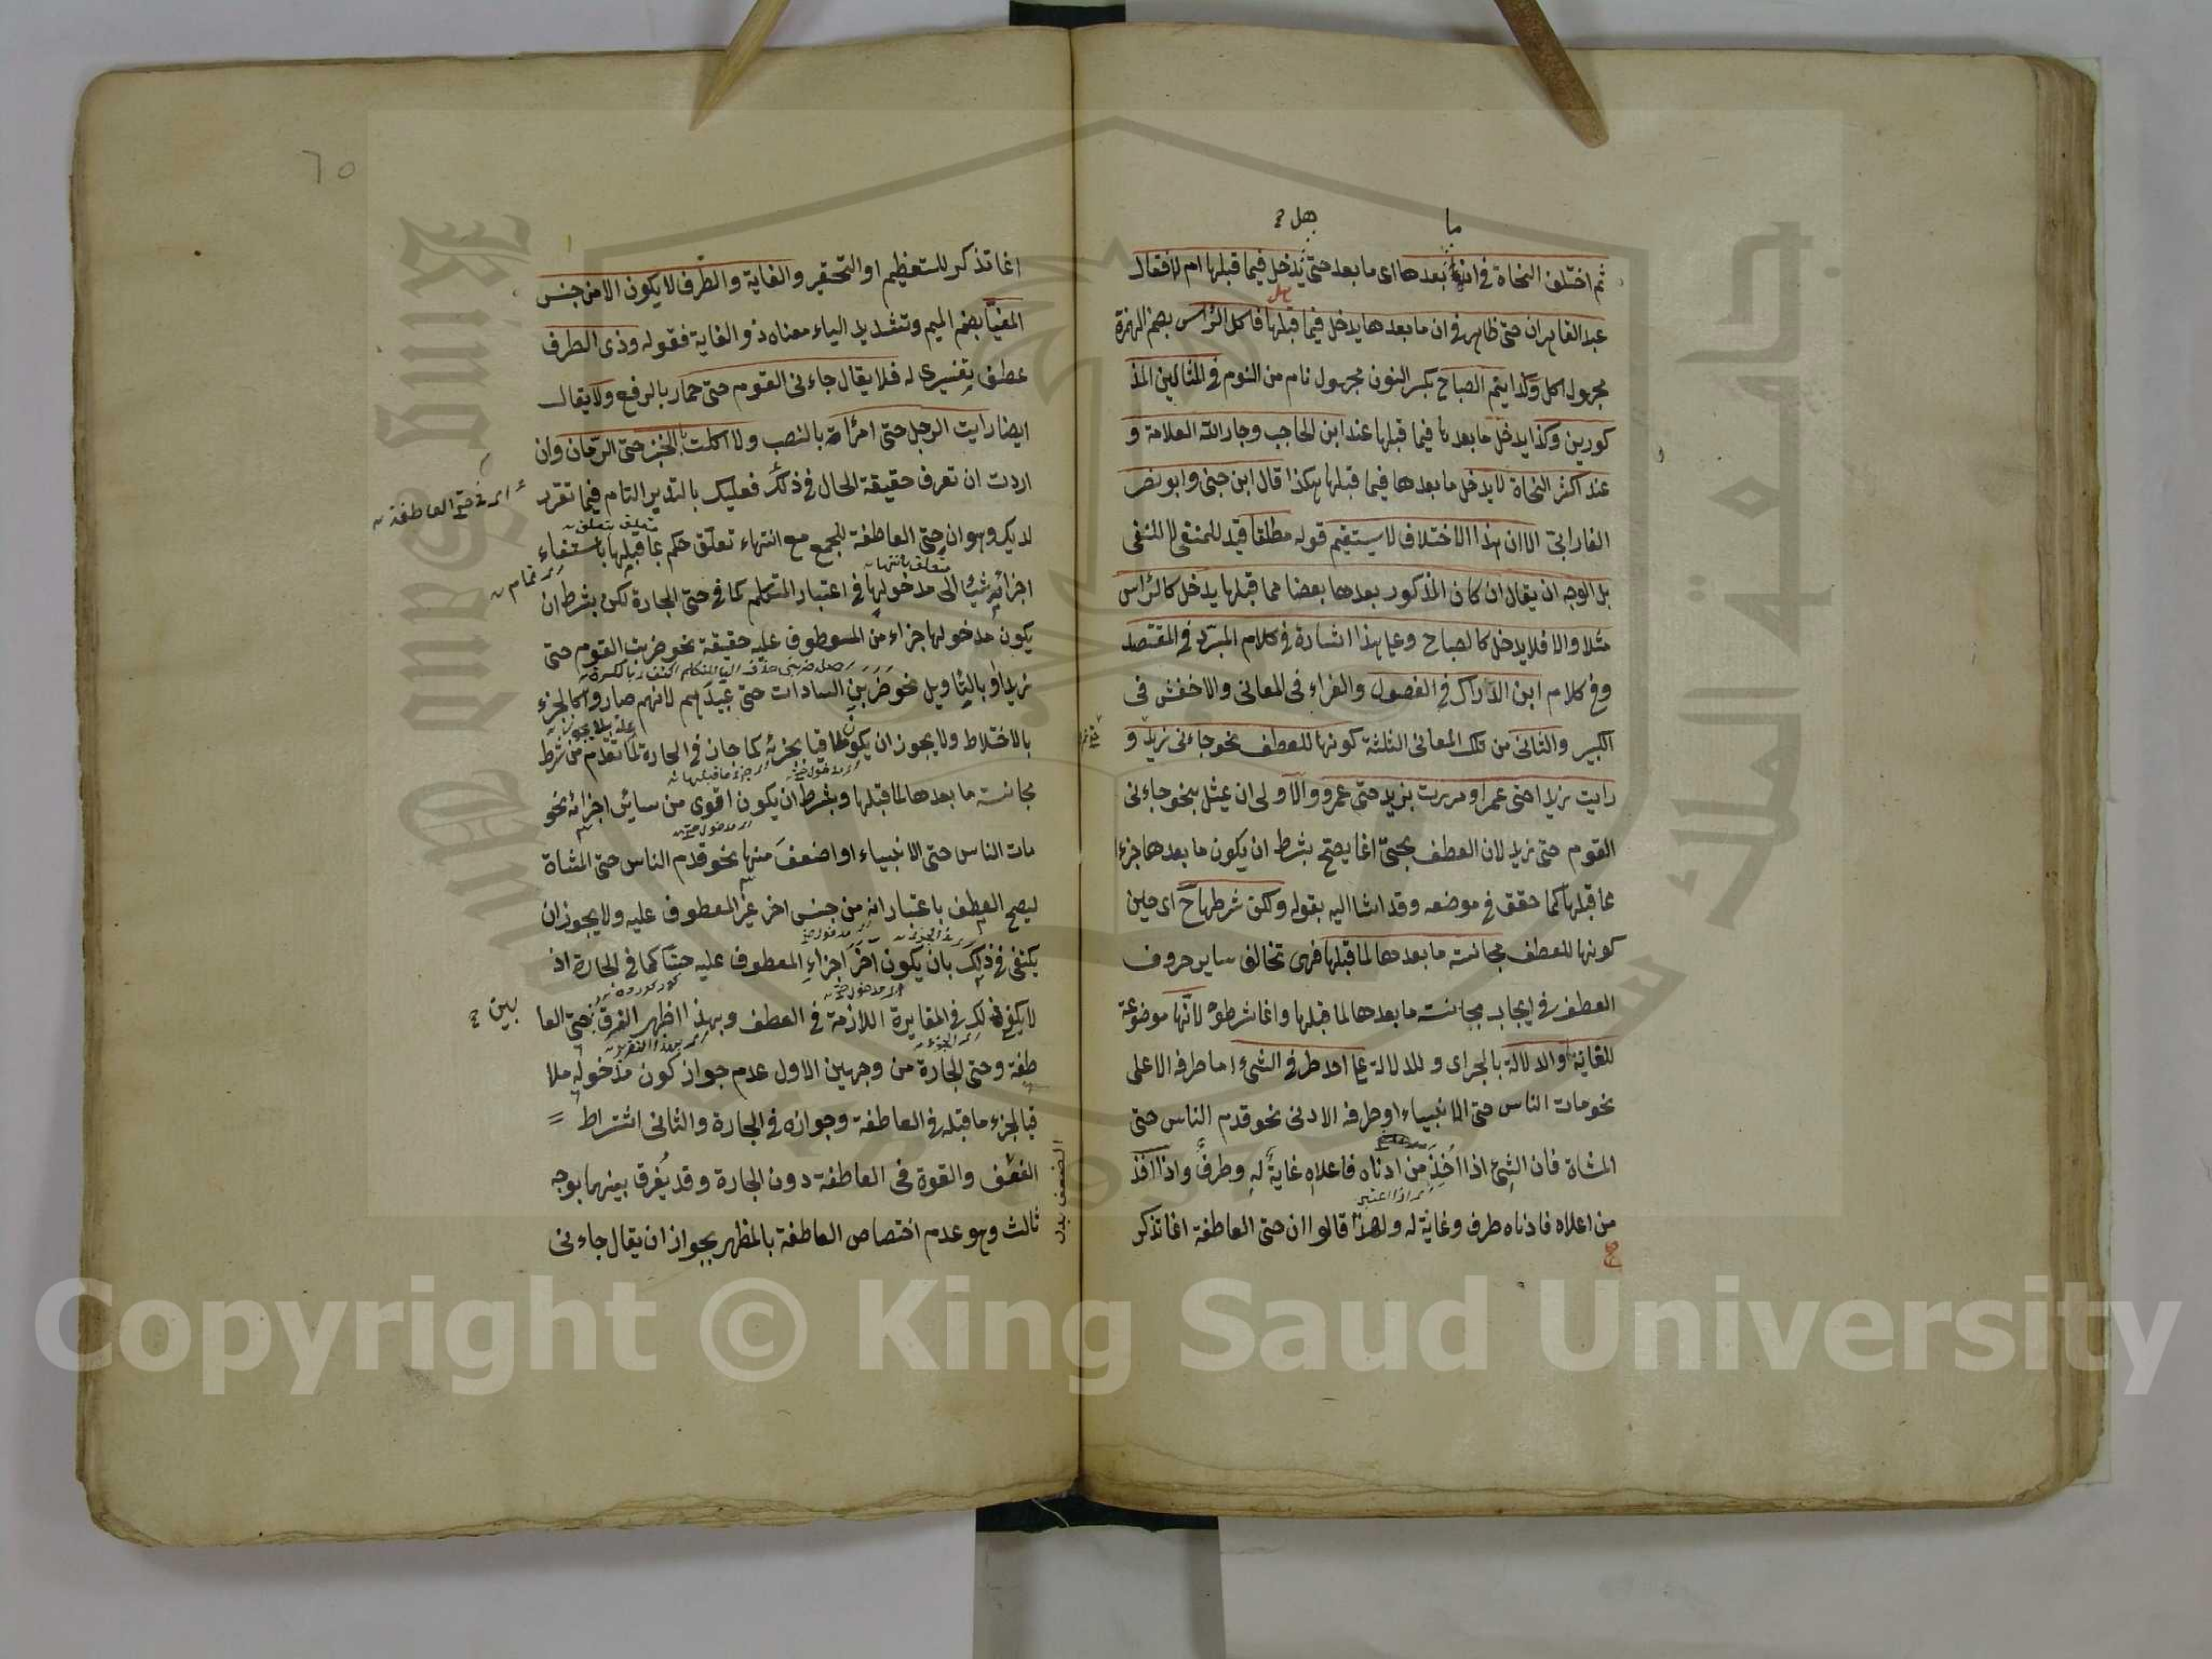 ما
هل
ثم اختلف النحاة في ان بعدها اى ما بعد حتى يدخل فيما قبلها ام لا فقال
عبد القاهر ان حتى ظاهر في ان ما بعدها يدخل فيما قبلها فاكل الرأس بضم الهمزة
مجهول اكل وكذا ينم الصباح بكسر النون مجهول نام من النوم في المثالين المذ
كورين وكذا يدخل ما بعدها فيما قبلها عند ابن الحاجب وجار الله العلامة و
عند اكثر النحاة لا يدخل ما بعدها فيما قبلها هكذا قال ابن جنى وابو نصر
الفارابى الا ان هذا الاختلاف لا يستقيم قوله مطلقا قيد للمنفى لا للنفى
بل الوجه ان يقال ان كان المذكور بعدها بعضا مما قبلها يدخل كالرأس
مثلا والا فلا يدخل كالصباح وعلى هذا اشارة في كلام المبرد في المقتصد
وفي كلام ابن الدراك في الفصول والفراء في المعانى والاخفش في
الكبير والثانى من تلك المعانى الثلثة كونها للعطف نحو جاءنى زيد و
رايت زيدا حتى عمرا ومررت بزيد حتى عمرو والاولى ان يمثل بنحو جاءنى
القوم حتى زيد لان العطف بحتى انما يصح بشرط ان يكون ما بعدها جزءا
مما قبلها كما حقق في موضعه وقد اشا اليه بقوله ولكن شرطها ح اى حين
كونها للعطف مجانسة ما بعدها لما قبلها فهى تخالف ساير حروف
العطف في ايجاب مجانسة ما بعدها لما قبلها وانما شرطوه لانها موضوعة
للغاية والدلالة بالجر اى وللدلالة على احد طرفى الشئ اما طرفه الاعلى
نحو مات الناس حتى الانبياء او طرفه الادنى نحو قدم الناس حتى
المشاة فان الشئ اذا اخذ من ادناه فاعلاه غاية له وطرف واذا اخذ
من اعلاه فادناه طرف وغاية له ولهذا قالوا ان حتى العاطفة انما تذكر
٦٥
انما تذكر للتعظيم او التحقير والغاية والطرف لا يكون الا من جنس
المغيا بضم الميم وتشديد الياء معناه ذو الغاية فقوله وذى الطرف
عطف تفسيرى له فلا يقال جاءنى القوم حتى حمار بالرفع ولا يقال
ايضا رايت الرجل حتى امرأة بالنصب ولا اكلت الخبز حتى الرمان وان
اردت ان تعرف حقيقة الحال في ذلك فعليك بالتدبر التام فيما تقرر
اى في حتى العاطفة
لديك وهو ان حتى العاطفة للجمع مع انتهاء تعلق حكم بما قبلها باستيفاء
اجزائه شيئا الى مدخولها في اعتبار المتكلم كما في حتى الجارة لكن بشرط ان
يكون مدخولها جزاء من المعطوف عليه حقيقة نحو ضربت القوم حتى
زيدا او بالتأويل نحو ضربنى السادات حتى عبيدهم لانهم صاروا كالجزء
بالاختلاط ولا يجوز ان يكون ملاقيا بجزئه كما جاز في الجارة لما تقدم من شرط
مجانسة ما بعدها لما قبلها وبشرط ان يكون اقوى من سائر اجزائه نحو
مات الناس حتى الانبياء او اضعف منها نحو قدم الناس حتى المشاة
ليصح العطف باعتبار انه من جنس اخر غير المعطوف عليه ولا يجوز ان
يكتفى في ذلك بان يكون اخر اجزاء المعطوف عليه حسا كما في الجارة اذ
لا يكفى ذلك في المغايرة اللازمة في العطف وبهذا ظهر الفرق حتى العا
بين
طفة وحتى الجارة من وجهين الاول عدم جواز كون مدخوله ملا
قيا لجزء ما قبله في العاطفة وجوازه في الجارة والثانى اشتراط
الضعف والقوة في العاطفة دون الجارة وقد يفرق بينهما بوجه
ثالث وهو عدم اختصاص العاطفة بالمظهر بجواز ان يقال جاءنى
Copyright © King Saud University